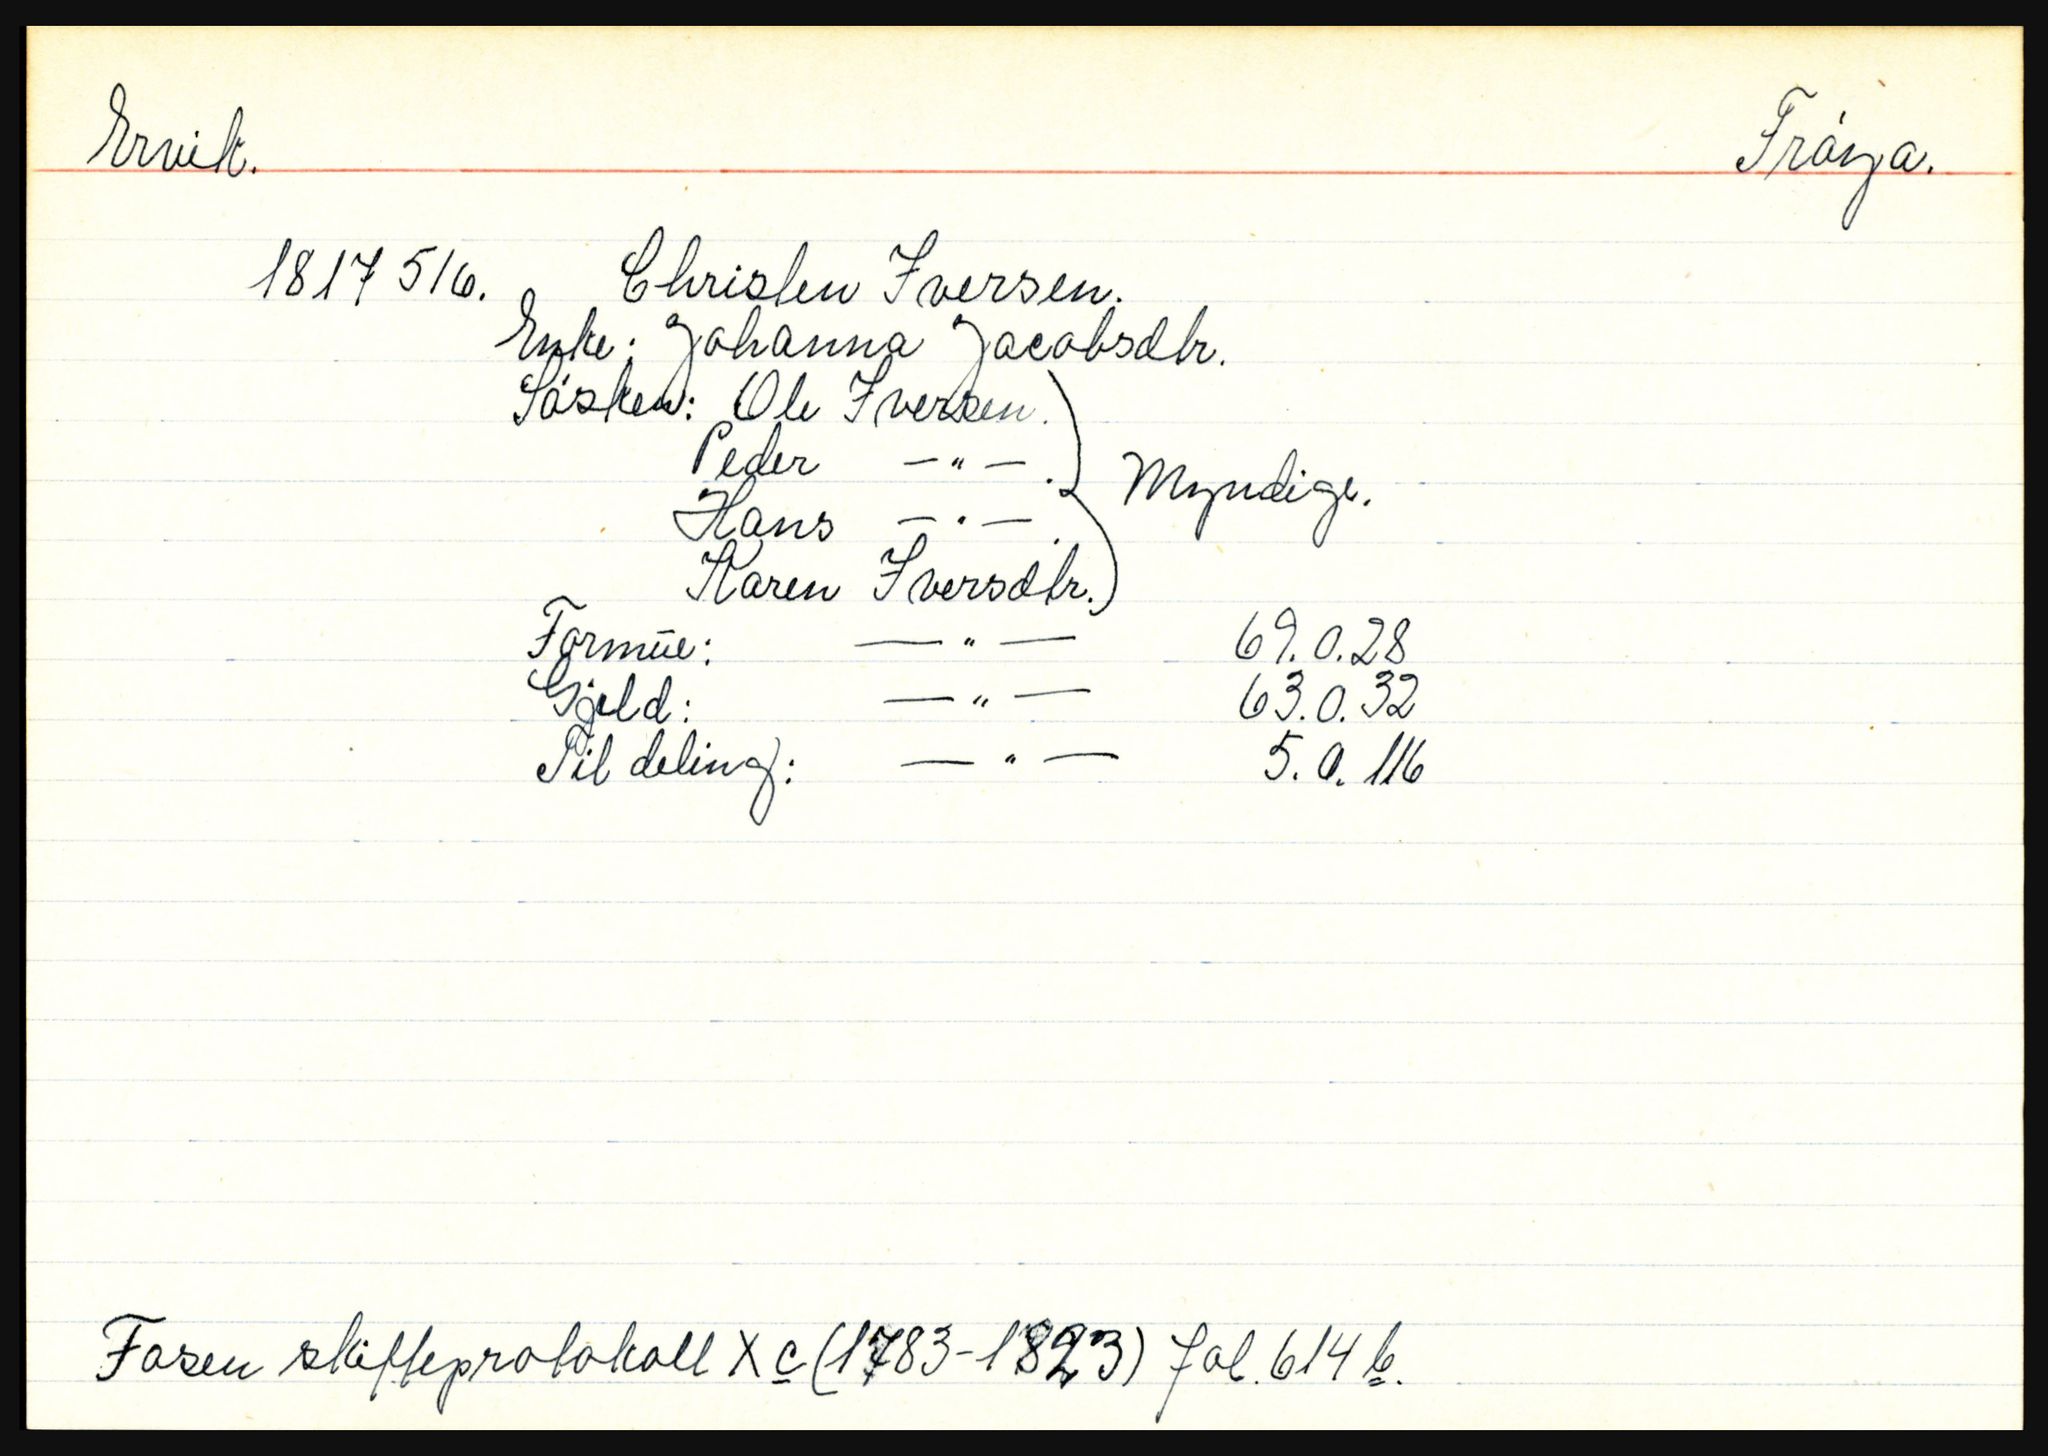 Ervik. Fröya.
1817 5/6. Christen Iversen.
Enke: Johanna Jacobsdtr.
Sösken: Ole Iversen.
Peder —„— .
Hans —„— . Myndige.
Karen Iversdtr.
Formūe: —„— 69.0.28
Gjeld: —„— 63.0.32
Til deling: —„— 5.0.116
Fosen skifteprotokoll X c (1783-1823) fol. 614 b.